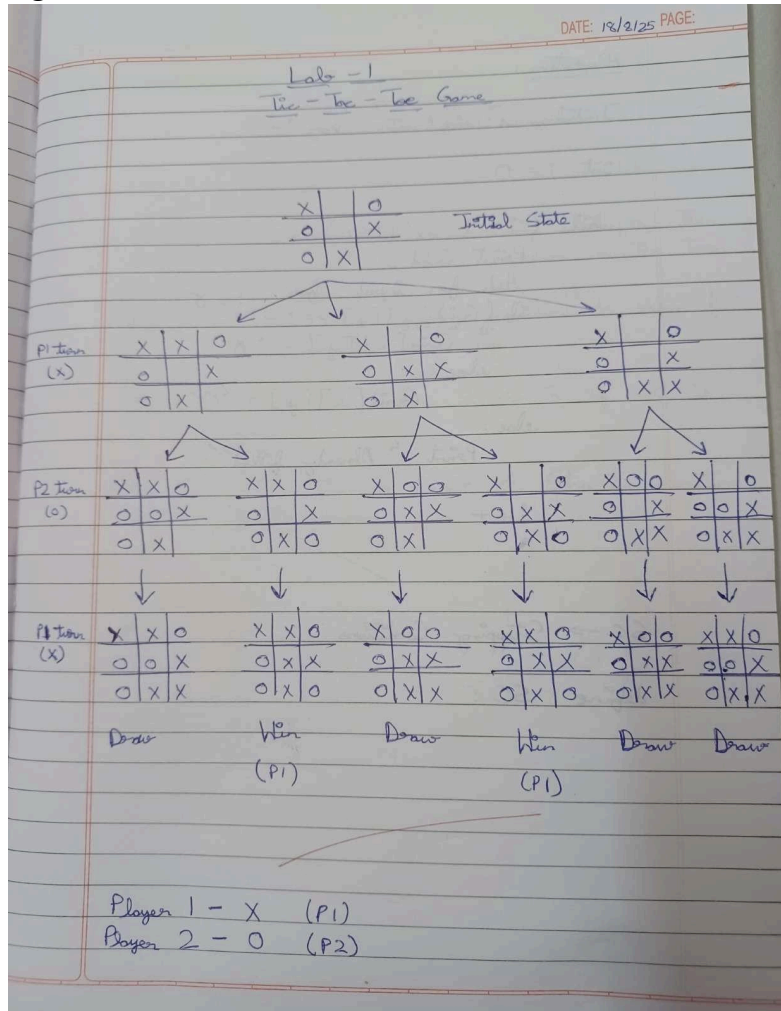 DATE: 18/2/25 PAGE:
Lab - 1
Tic - Tac - Toe Game
X | | O
O | | X
O | X |
Initial State
P1 turn
(X)
X | X | O    X | | O    X | | O
O | | X    O | X | X    O | | X
O | X |    O | X |    O | X | X
P2 turn
(O)
X | X | O    X | X | O    X | O | O    X | | O    X | O | O    X | | O
O | O | X    O | | X    O | X | X    O | X | X    O | | X    O | O | X
O | X |    O | X | O    O | X |    O | X | O    O | X | X    O | X | X
P1 turn
(X)
X | X | O    X | X | O    X | O | O    X | X | O    X | O | O    X | X | O
O | O | X    O | X | X    O | X | X    O | X | X    O | X | X    O | O | X
O | X | X    O | X | O    O | X | X    O | X | O    O | X | X    O | X | X
Draw    Win    Draw    Win    Draw    Draw
(P1)    (P1)
Player 1 - X (P1)
Player 2 - O (P2)